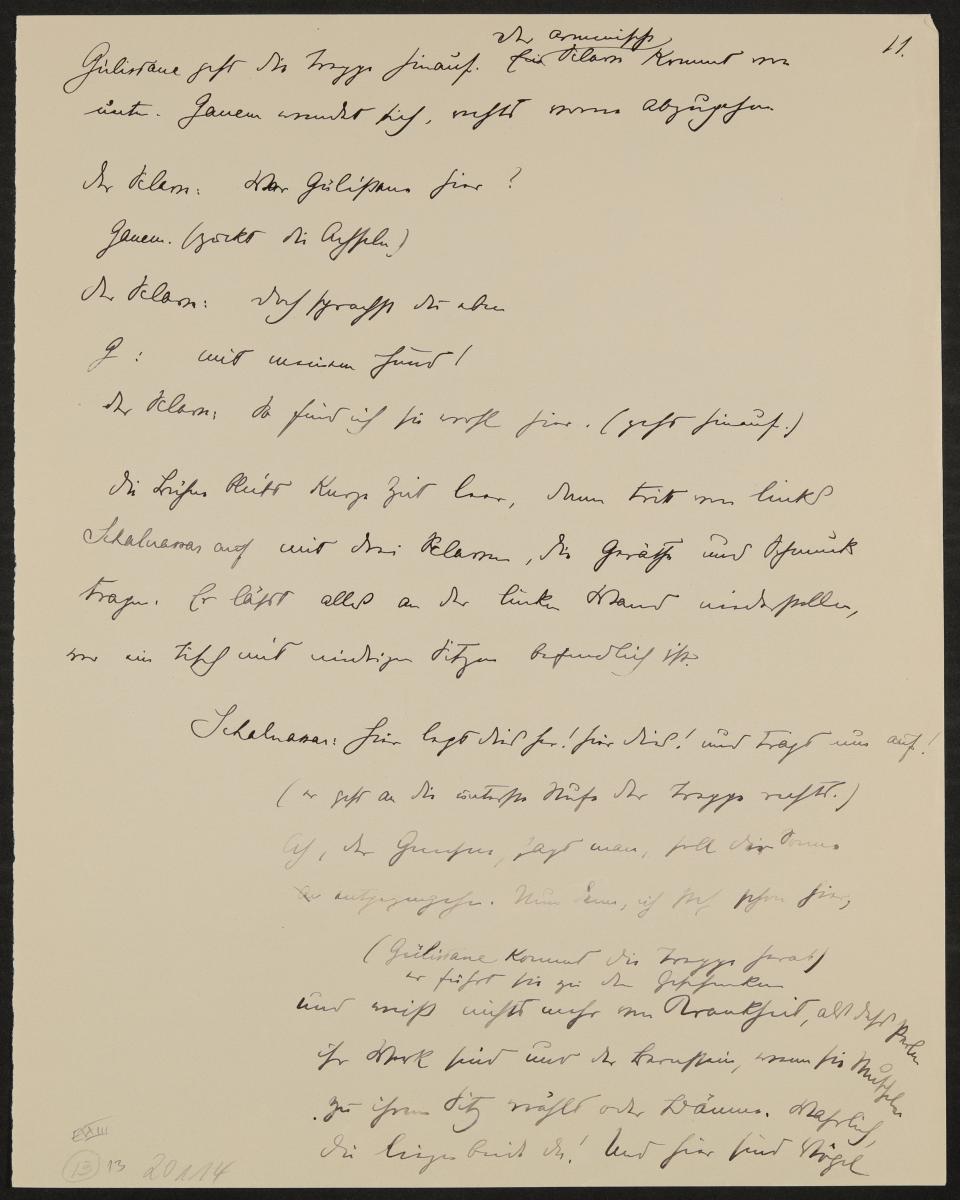 11.
der armenische
Gülistane geht die Treppe hinauf. Ein Sclave kommt von
unten. Ganem wendet sich, rechts vorne abzugehen
der Sclave: War Gülistane hier?
Ganem. (zuckt die Achseln)
der Sclave: doch sprachst du eben
G: mit meinem Hund!
der Sclave: So find ich sie wohl hier. (geht hinauf.)
die Bühne bleibt kurze Zeit leer, dann tritt von links
Schalnassar auf mit drei Sclaven, die Geräthe und Schmuck
tragen. Er läßt alles an der linken Wand niederstellen,
wo ein Tisch mit niedrigen Sitzen befindlich ist.
Schalnassar: hier legt dies her! hier dies! und tragt nun auf!
(er geht an die unterste Stufe der Treppe rechts.)
der Greise, sagt man, soll die Sonne
entgegengehn. Nun denn, ich steh schon hier,
(Gülistane kommt die Treppe herab)
er führt sie zu den Geschenken
und weiß nichts mehr von Krankheit, als daß Perlen
ihr Werk sind und der Bernstein, wenn sie Muscheln
zu ihrem Sitz wählt oder Bäume. Wahrlich,
die liegen beide da! Und hier sind Vögel
EVIII
13 13 20114